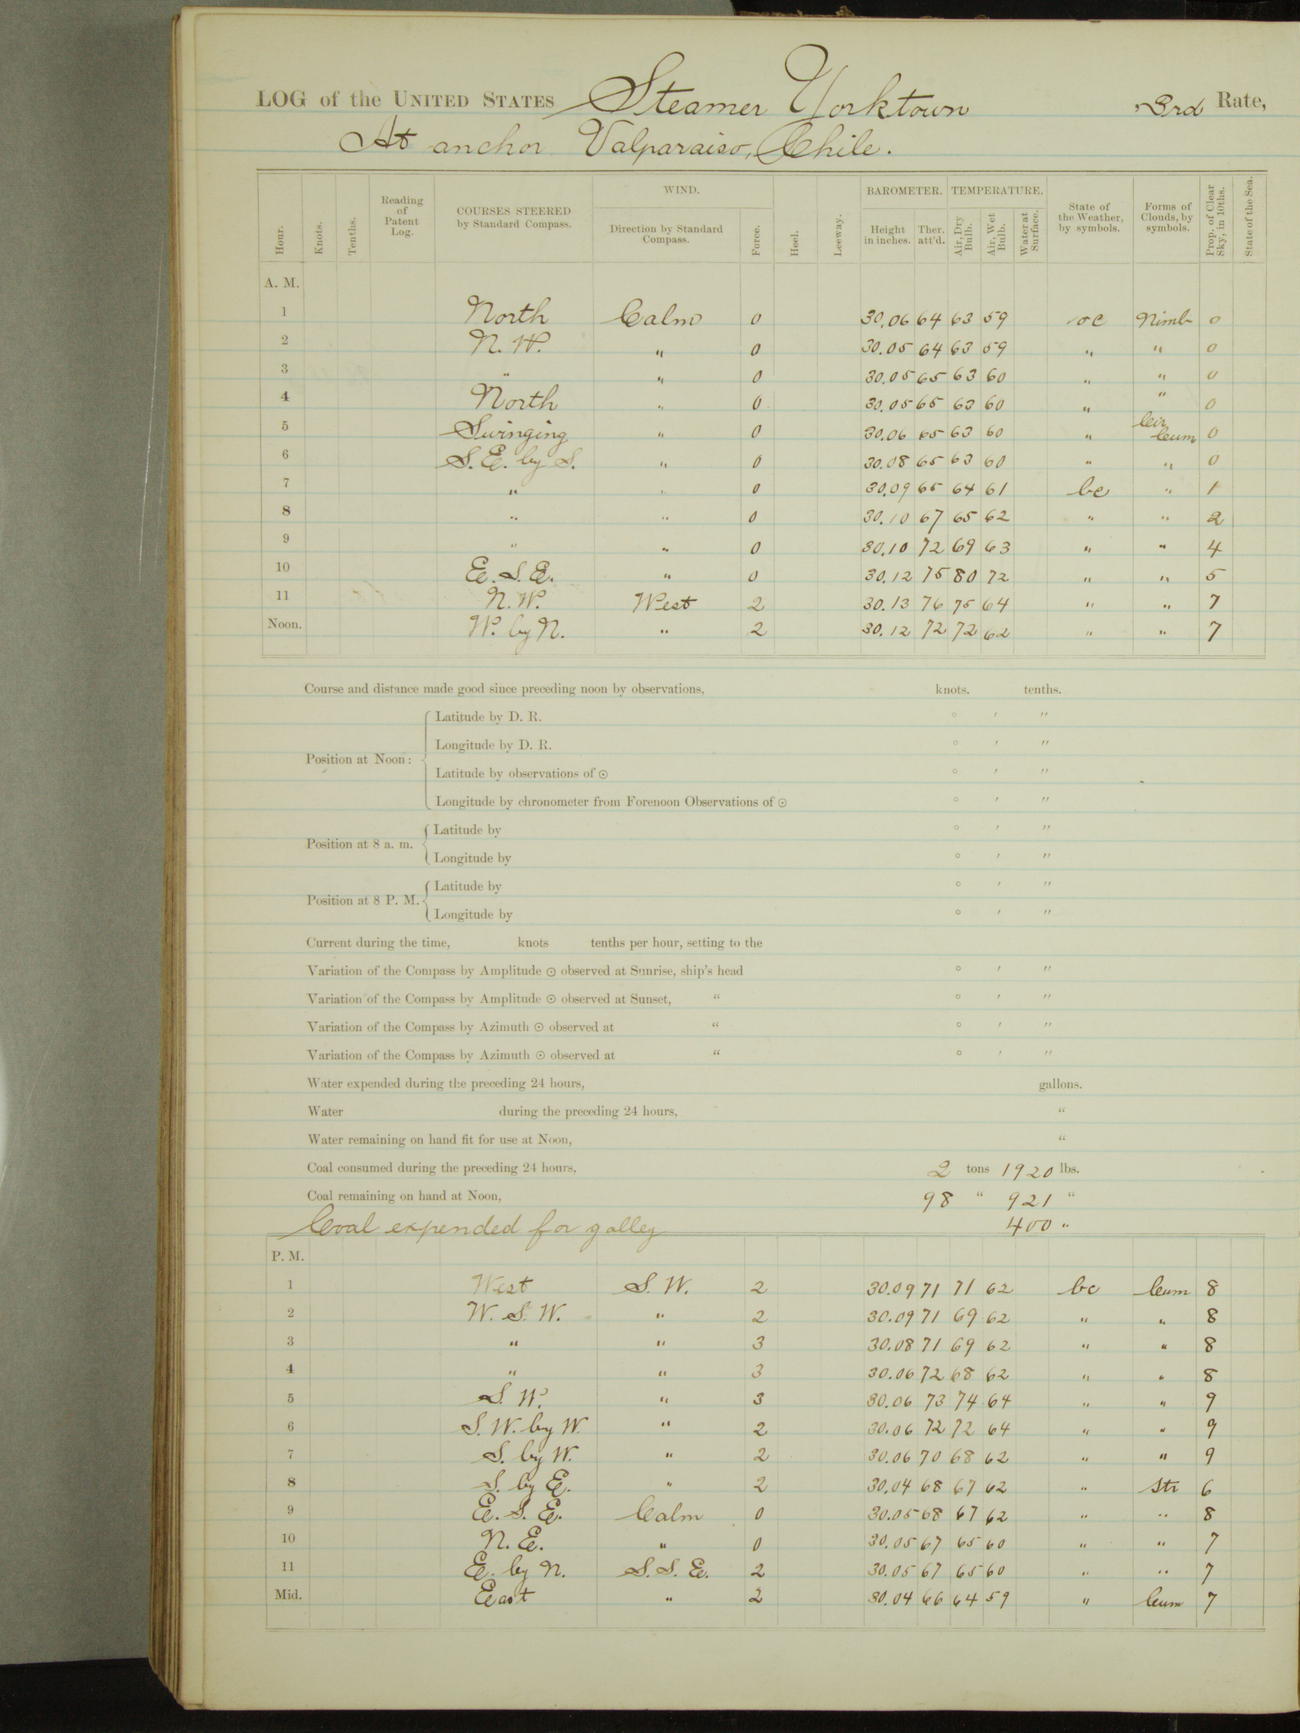 LOG of the UNITED STATES Steamer Yorktown, 3rd Rate,
At anchor Valparaiso, Chile.
Hour. Knots. Tenths. Reading of Patent Log. COURSES STEERED by Standard Compass. WIND. Direction by Standard Compass. Force. Heel. Leeway. BAROMETER. Height in inches. Ther. att'd. TEMPERATURE. Air, Dry Bulb. Air, Wet Bulb. Water at Surface. State of the Weather, by symbols. Forms of Clouds, by symbols. Prop. of Clear Sky, in 10ths. State of the Sea.
A. M.
1 North Calm 0 30.06 64 63 59 oc Nimb 0
2 N. W. " 0 30.05 64 63 59 " " 0
3 " " 0 30.05 65 63 60 " " 0
4 North " 0 30.05 65 63 60 " " 0
5 Swinging " 0 30.06 65 63 60 " Cir Cum 0
6 S. E. by S. " 0 30.08 65 63 60 " " 0
7 " " 0 30.09 65 64 61 bc " 1
8 " " 0 30.10 67 65 62 " " 2
9 " " 0 30.10 72 69 63 " " 4
10 E. S. E. " 0 30.12 75 80 72 " " 5
11 N. W. West 2 30.13 76 75 64 " " 7
Noon. W. by N. " 2 30.12 72 72 62 " " 7
Course and distance made good since preceding noon by observations, knots. tenths.
Position at Noon:
Latitude by D. R. ° ′ ″
Longitude by D. R. ° ′ ″
Latitude by observations of ☉ ° ′ ″
Longitude by chronometer from Forenoon Observations of ☉ ° ′ ″
Position at 8 a. m.
Latitude by ° ′ ″
Longitude by ° ′ ″
Position at 8 P. M.
Latitude by ° ′ ″
Longitude by ° ′ ″
Current during the time, knots tenths per hour, setting to the
Variation of the Compass by Amplitude ☉ observed at Sunrise, ship's head ° ′ ″
Variation of the Compass by Amplitude ☉ observed at Sunset, " ° ′ ″
Variation of the Compass by Azimuth ☉ observed at " ° ′ ″
Variation of the Compass by Azimuth ☉ observed at " ° ′ ″
Water expended during the preceding 24 hours, gallons.
Water during the preceding 24 hours, "
Water remaining on hand fit for use at Noon, "
Coal consumed during the preceding 24 hours, 2 tons 1920 lbs.
Coal remaining on hand at Noon, 98 " 921 "
Coal expended for galley 400 "
P. M.
1 West S. W. 2 30.09 71 71 62 bc Cum 8
2 W. S. W. " 2 30.09 71 69 62 " " 8
3 " " 3 30.08 71 69 62 " " 8
4 " " 3 30.06 72 68 62 " " 8
5 S. W. " 3 30.06 73 74 64 " " 9
6 S. W. by W. " 2 30.06 72 72 64 " " 9
7 S. by W. " 2 30.06 70 68 62 " " 9
8 S. by E. " 2 30.04 68 67 62 " Str 6
9 E. S. E. Calm 0 30.05 68 67 62 " " 8
10 N. E. " 0 30.05 67 65 60 " " 7
11 E. by N. S. S. E. 2 30.05 67 65 60 " " 7
Mid. East " 2 30.04 66 64 59 " Cum 7